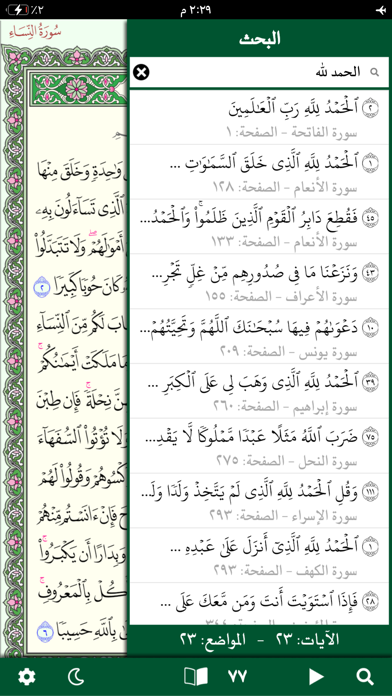 ٪٢
٢:٢٩ م
سُورَةُ النِّسَاءِ
البحث
الحمد لله
ٱلۡحَمۡدُ لِلَّهِ رَبِّ ٱلۡعَٰلَمِينَ ٢
سورة الفاتحة - الصفحة: ١
ٱلۡحَمۡدُ لِلَّهِ ٱلَّذِي خَلَقَ ٱلسَّمَٰوَٰتِ ... ١
سورة الأنعام - الصفحة: ١٢٨
فَقُطِعَ دَابِرُ ٱلۡقَوۡمِ ٱلَّذِينَ ظَلَمُواْۚ وَٱلۡحَمۡدُ... ٤٥
سورة الأنعام - الصفحة: ١٣٣
وَنَزَعۡنَا مَا فِي صُدُورِهِم مِّنۡ غِلّٖ تَجۡرِ... ٤٣
سورة الأعراف - الصفحة: ١٥٥
دَعۡوَىٰهُمۡ فِيهَا سُبۡحَٰنَكَ ٱللَّهُمَّ وَتَحِيَّتُهُمۡ... ١٠
سورة يونس - الصفحة: ٢٠٩
ٱلۡحَمۡدُ لِلَّهِ ٱلَّذِي وَهَبَ لِي عَلَى ٱلۡكِبَرِ ... ٣٩
سورة إبراهيم - الصفحة: ٢٦٠
ضَرَبَ ٱللَّهُ مَثَلًا عَبۡدٗا مَّمۡلُوكٗا لَّا يَقۡدِ... ٧٥
سورة النحل - الصفحة: ٢٧٥
وَقُلِ ٱلۡحَمۡدُ لِلَّهِ ٱلَّذِي لَمۡ يَتَّخِذۡ وَلَدٗا وَلَ... ١١١
سورة الإسراء - الصفحة: ٢٩٣
ٱلۡحَمۡدُ لِلَّهِ ٱلَّذِيٓ أَنزَلَ عَلَىٰ عَبۡدِهِ ... ١
سورة الكهف - الصفحة: ٢٩٣
فَإِذَا ٱسۡتَوَيۡتَ أَنتَ وَمَن مَّعَكَ عَلَى ... ٢٨
الآيات: ٢٣ - المواضع: ٢٣
وَٰحِدَةٖ وَخَلَقَ مِنۡهَا
ٱلَّذِي تَسَآءَلُونَ بِهِۦ
أَمۡوَٰلَهُمۡۖ وَلَا تَتَبَدَّلُواْ
كَانَ حُوبٗا كَبِيرٗا ٢
لَكُم مِّنَ ٱلنِّسَآءِ
مَا مَلَكَتۡ أَيۡمَٰنُكُمۡۚ
نِحۡلَةٗۚ فَإِن طِبۡنَ
وَلَا تُؤۡتُواْ ٱلسُّفَهَآءَ
وَٱكۡسُوهُمۡ وَقُولُواْ لَهُمۡ
فَإِنۡ ءَانَسۡتُم مِّنۡهُمۡ
وَبِدَارًا أَن يَكۡبَرُواْۚ
كُلۡ بِٱلۡمَعۡرُوفِۚ
بِٱللَّهِ حَسِيبٗا ٦
٧٧